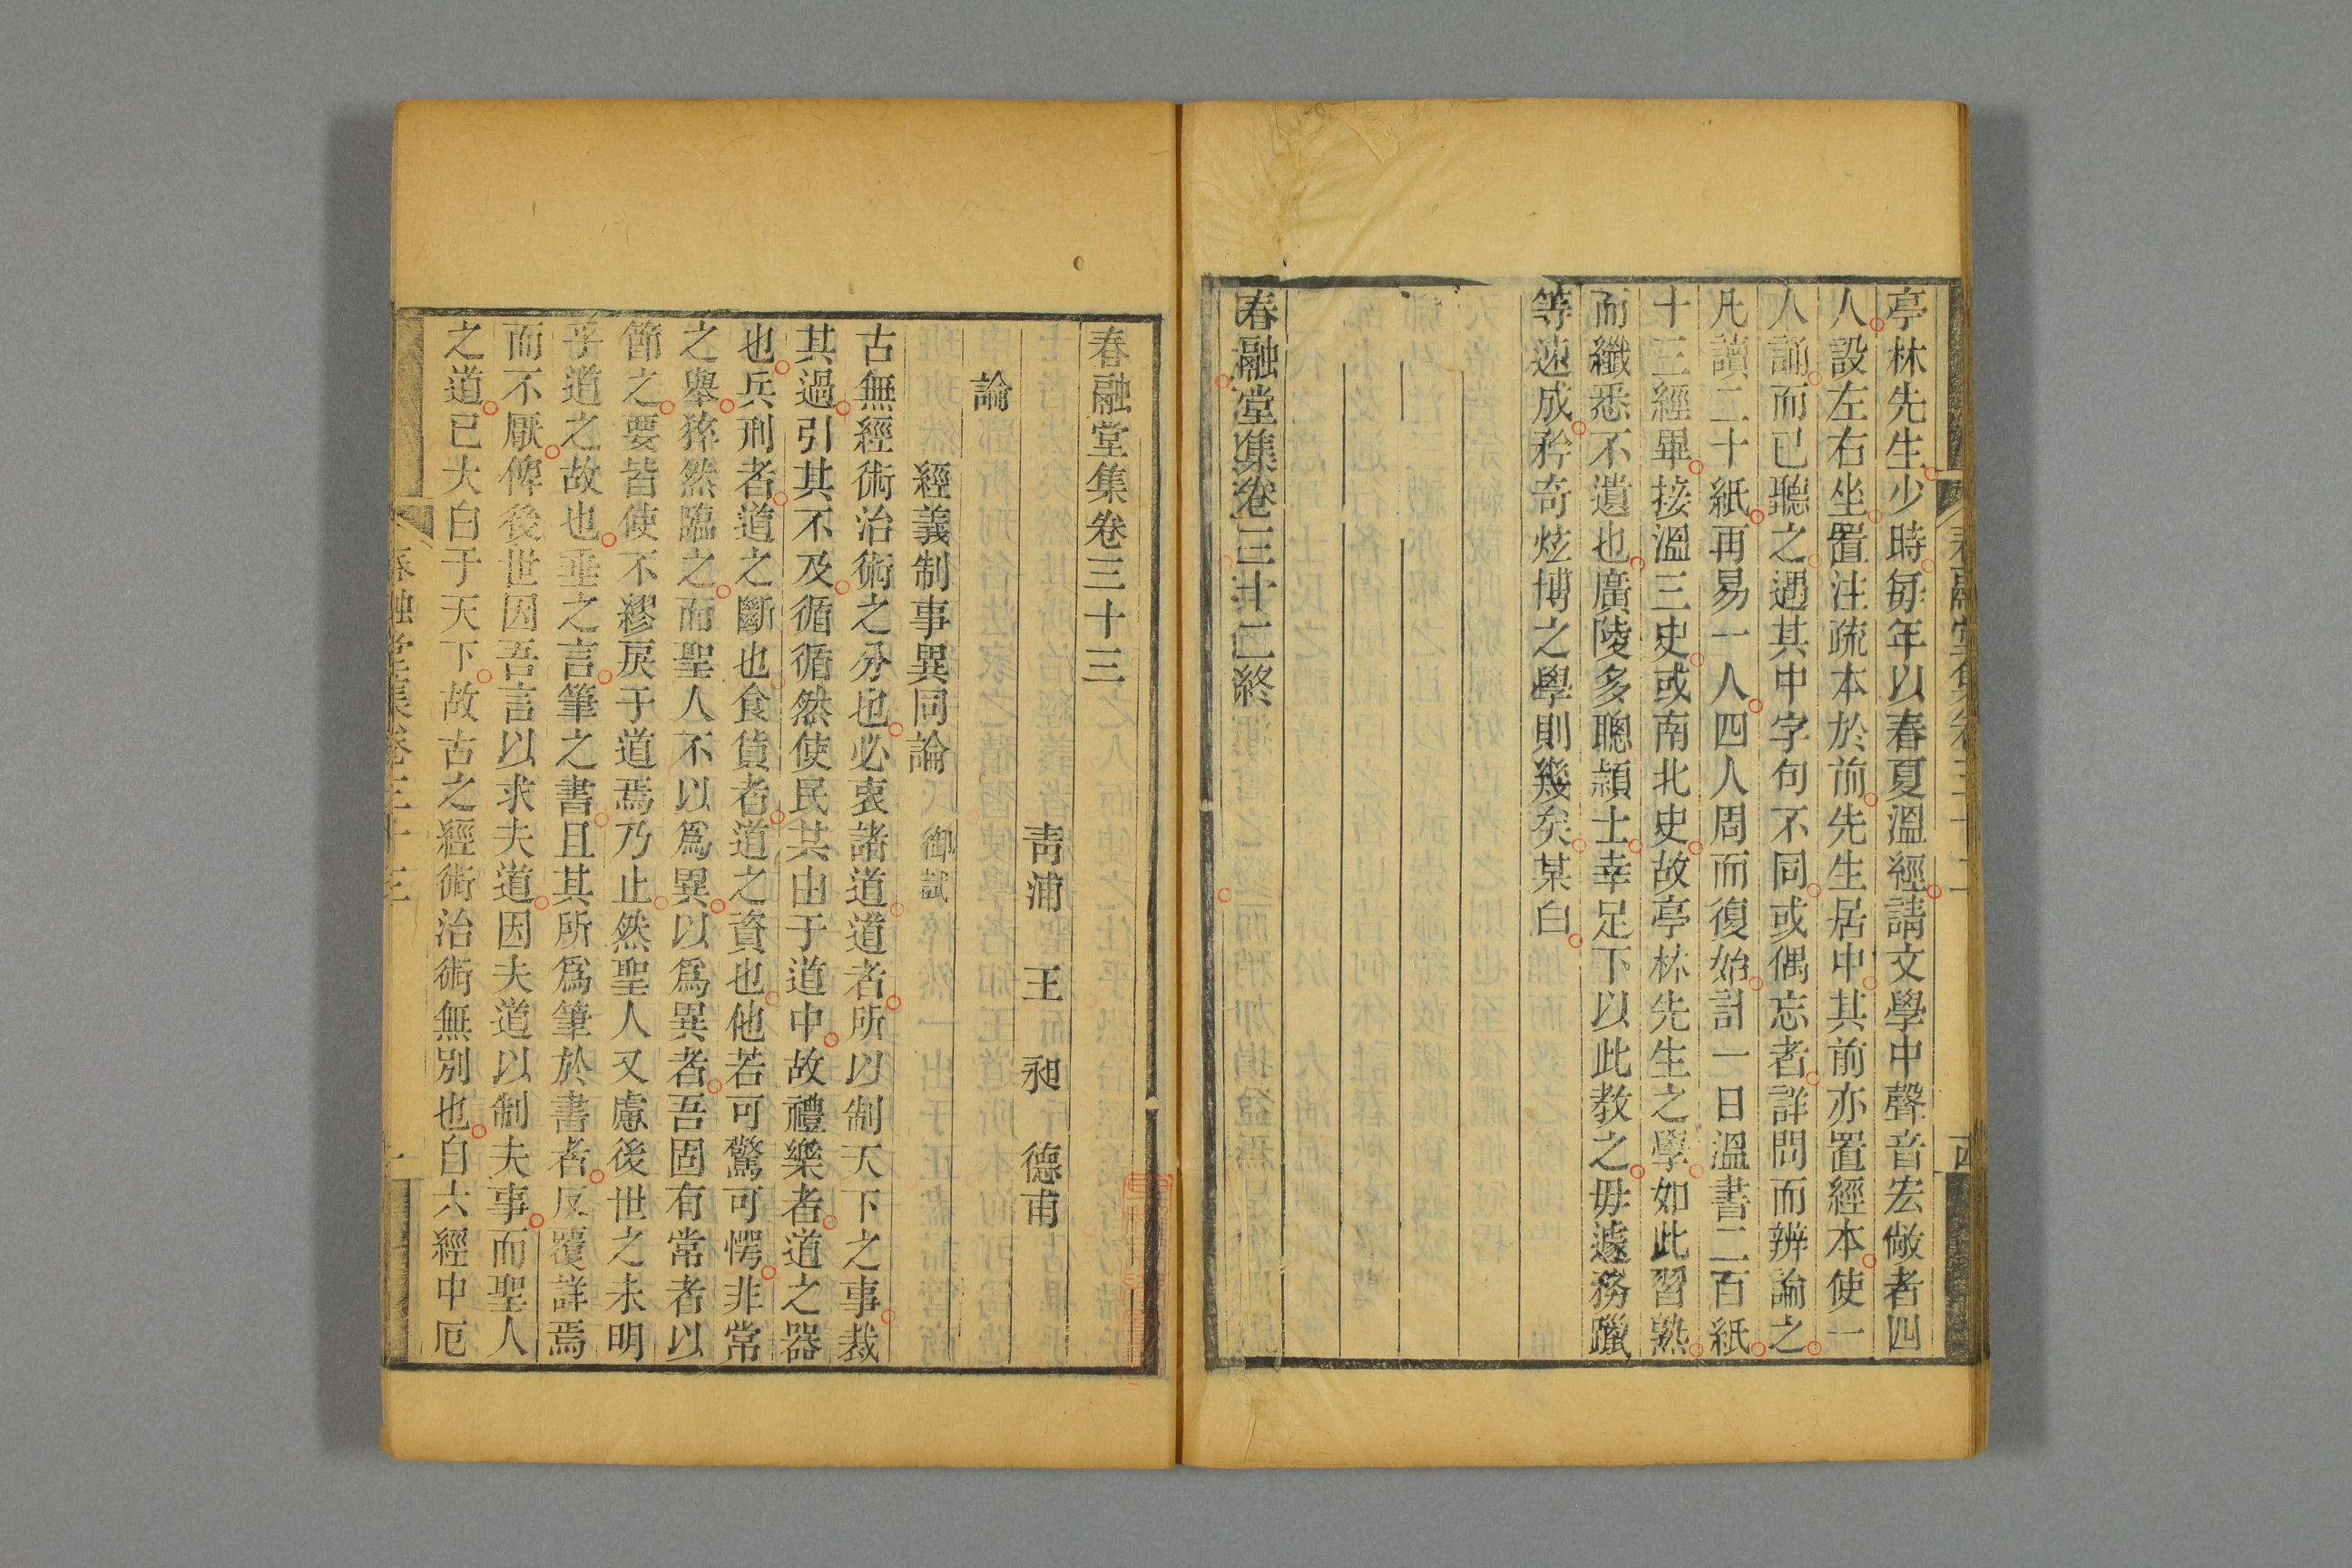 亭林先生少時每年以春夏溫經請文學中聲音宏敞者四
人設左右坐置注疏本於前先生居中其前亦置經本使一
人誦而已聽之遇其中字句不同或偶忘者詳問而辨論之
凡讀二十紙再易一人四人周而復始計一日溫書二百紙
十三經畢接溫三史或南北史故亭林先生之學如此習熟
而纖悉不遺也廣陵多聰顓士幸足下以此教之毋遽務躐
等速成矜奇炫博之學則幾矣某白
春融堂集卷三十二終
春融堂集卷三十三
青浦 王 昶 德甫
論
經義制事異同論 御試
古無經術治術之分也必衷諸道道者所以制天下之事裁
其過引其不及循循然使民共由于道中故禮樂者道之器
也兵刑者道之斷也食貨者道之資也他若可驚可愕非常
之舉猝然臨之而聖人不以為異以為異者吾固有常者以
節之要皆使不繆戾于道焉乃止然聖人又慮後世之未明
乎道之故也垂之言筆之書且其所為筆於書者反覆詳焉
而不厭俾後世因吾言以求夫道因夫道以制夫事而聖人
之道已大白于天下故古之經術治術無別也自六經中厄
春融堂集卷三十三